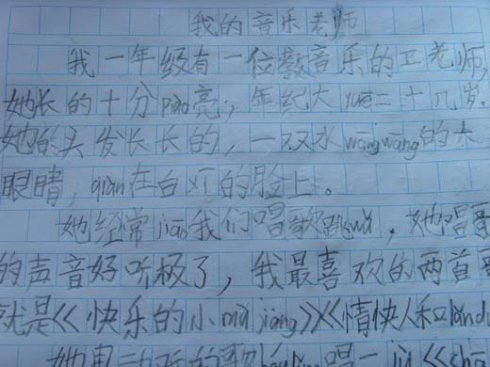 我的音乐老师
我一年级有一位教音乐的王老师,
她长的十分piào亮,年纪大yuē二十几岁。
她的头发长长的,一双水wāngwāng的大
眼睛,qiàn在白 的脸上。
她经常jiāo我们唱歌跳wǔ,她唱歌
的声音好听极了,我最喜欢的两首
就是《快乐的小 jiàng》《情快人和
她 的歌 唱一